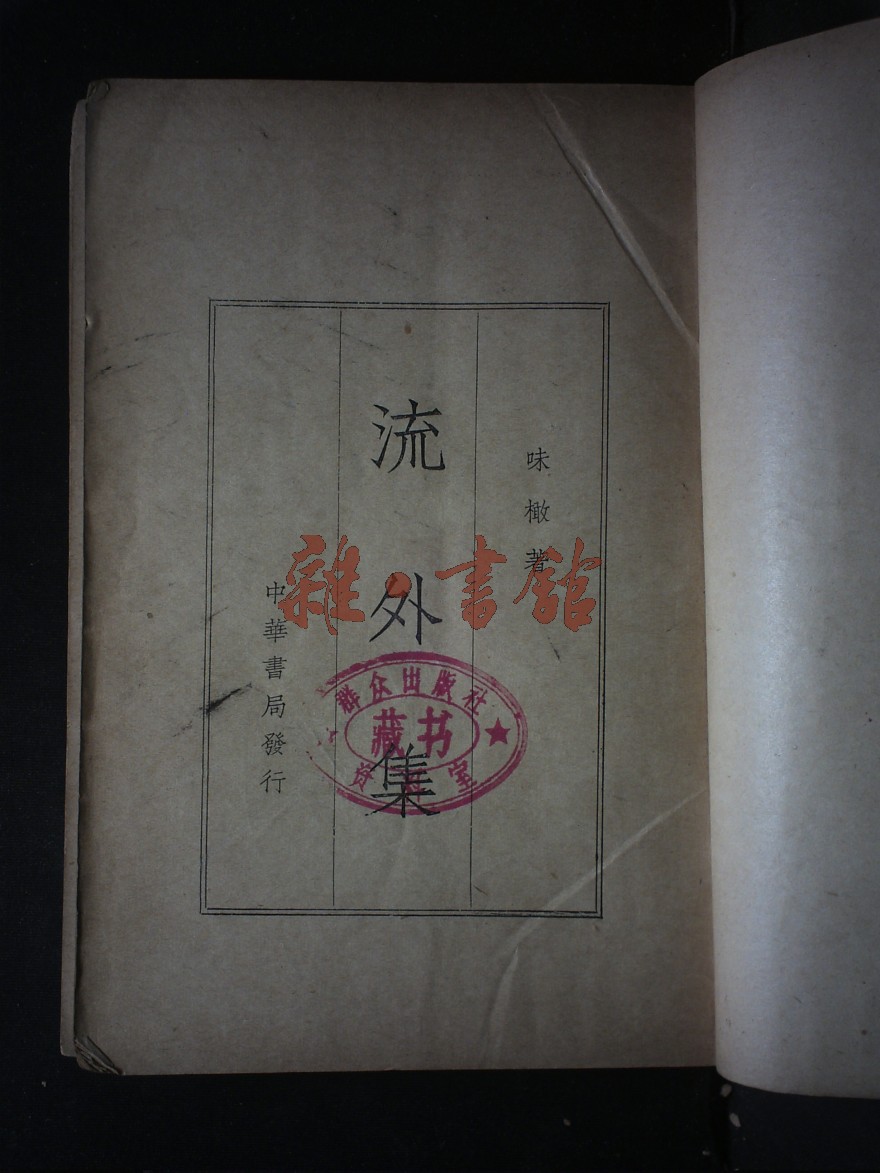 味橄著
流外集
中華書局發行
雜·書館
群众出版社
藏书
室